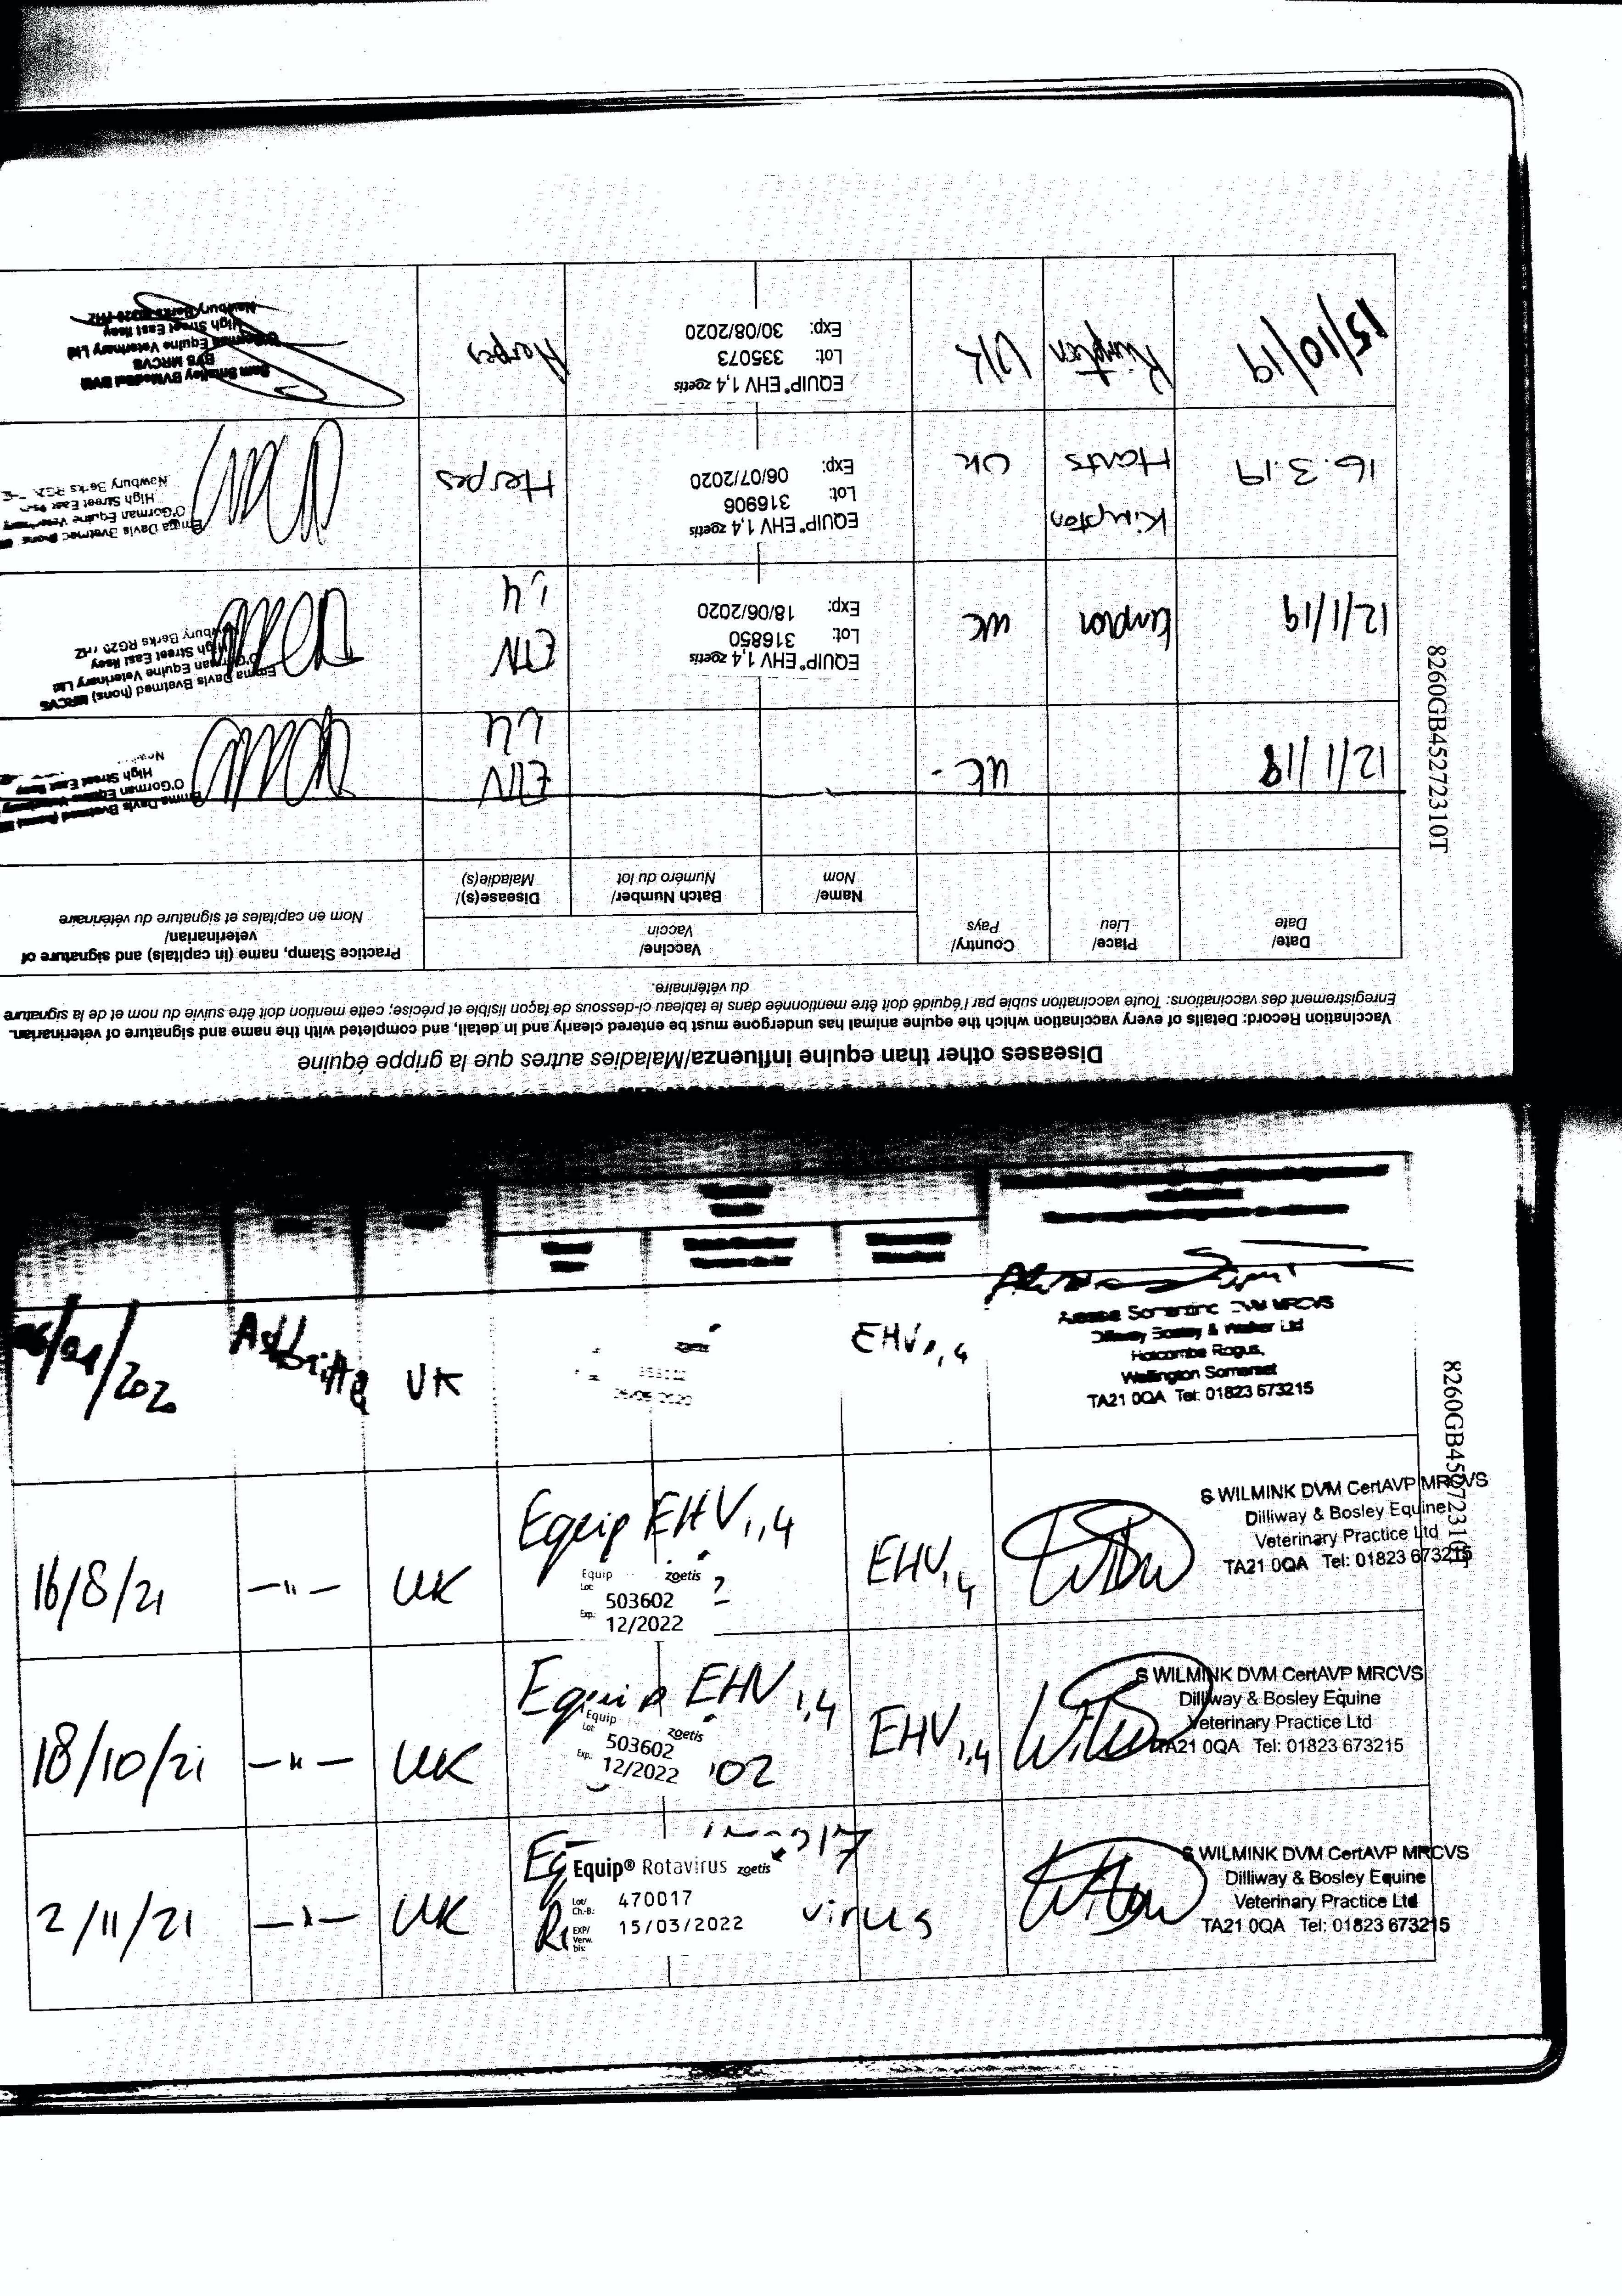 Diseases other than equine influenza/Maladies autres que la grippe équine
Vaccination Record: Details of every vaccination which the equine animal has undergone must be entered clearly and in detail, and completed with the name and signature of veterinarian.
Enregistrement des vaccinations: Toute vaccination subie par l'équidé doit être mentionnée dans le tableau ci-dessous de façon lisible et précise; cette mention doit être suivie du nom et de la signature
du vétérinaire.
Date/
Date
Place/
Lieu
Country/
Pays
Vaccine/
Vaccin
Name/
Nom
Batch Number/
Numéro du lot
Disease(s)/
Maladie(s)
Practice Stamp, name (in capitals) and signature of
veterinarian/
Nom en capitales et signature du vétérinaire
12/1/18
UK
1,4
Emma Davis Bvetmed
O'Gorman Equine
High Street East
12/1/19
UK
EQUIP® EHV 1,4 zoetis
Lot: 316850
Exp: 18/06/2020
1,4
Emma Davis Bvetmed (hons) MRCVS
O'Gorman Equine Veterinary Ltd
High Street East Ilsley
Newbury Berks RG20
16.3.19
Kimpton
Hants
UK
EQUIP® EHV 1,4 zoetis
Lot: 316906
Exp: 06/07/2020
Herpes
Emma Davis Bvetmed (hons)
O'Gorman Equine Veterinary
High Street East
Newbury Berks
15/10/19
UK
EQUIP® EHV 1,4 zoetis
Lot: 335073
Exp: 30/08/2020
Herpes
BVS MRCVS
O'Gorman Equine Veterinary Ltd
High Street East Ilsley
Newbury Berks
8260GB45272310T
Ashbrittle
UK
EHV 1,4
Sorrentino DVM MRCVS
Dilliway Bosley & Walker Ltd
Holcombe Rogus,
Wellington Somerset
TA21 0QA Tel: 01823 673215
16/8/21
—"—
UK
Equip EHV 1,4
Equip zoetis
Lot: 503602
Exp: 12/2022
EHV 1,4
S WILMINK DVM CertAVP MRCVS
Dilliway & Bosley Equine
Veterinary Practice Ltd
TA21 0QA Tel: 01823 673215
18/10/21
—"—
UK
Equip EHV 1,4
Equip zoetis
Lot: 503602
Exp: 12/2022
EHV 1,4
S WILMINK DVM CertAVP MRCVS
Dilliway & Bosley Equine
Veterinary Practice Ltd
TA21 0QA Tel: 01823 673215
2/11/21
—"—
UK
Equip® Rotavirus zoetis
Lot/
Ch.-B.: 470017
EXP/
Verw.
bis: 15/03/2022
virus
S WILMINK DVM CertAVP MRCVS
Dilliway & Bosley Equine
Veterinary Practice Ltd
TA21 0QA Tel: 01823 673215